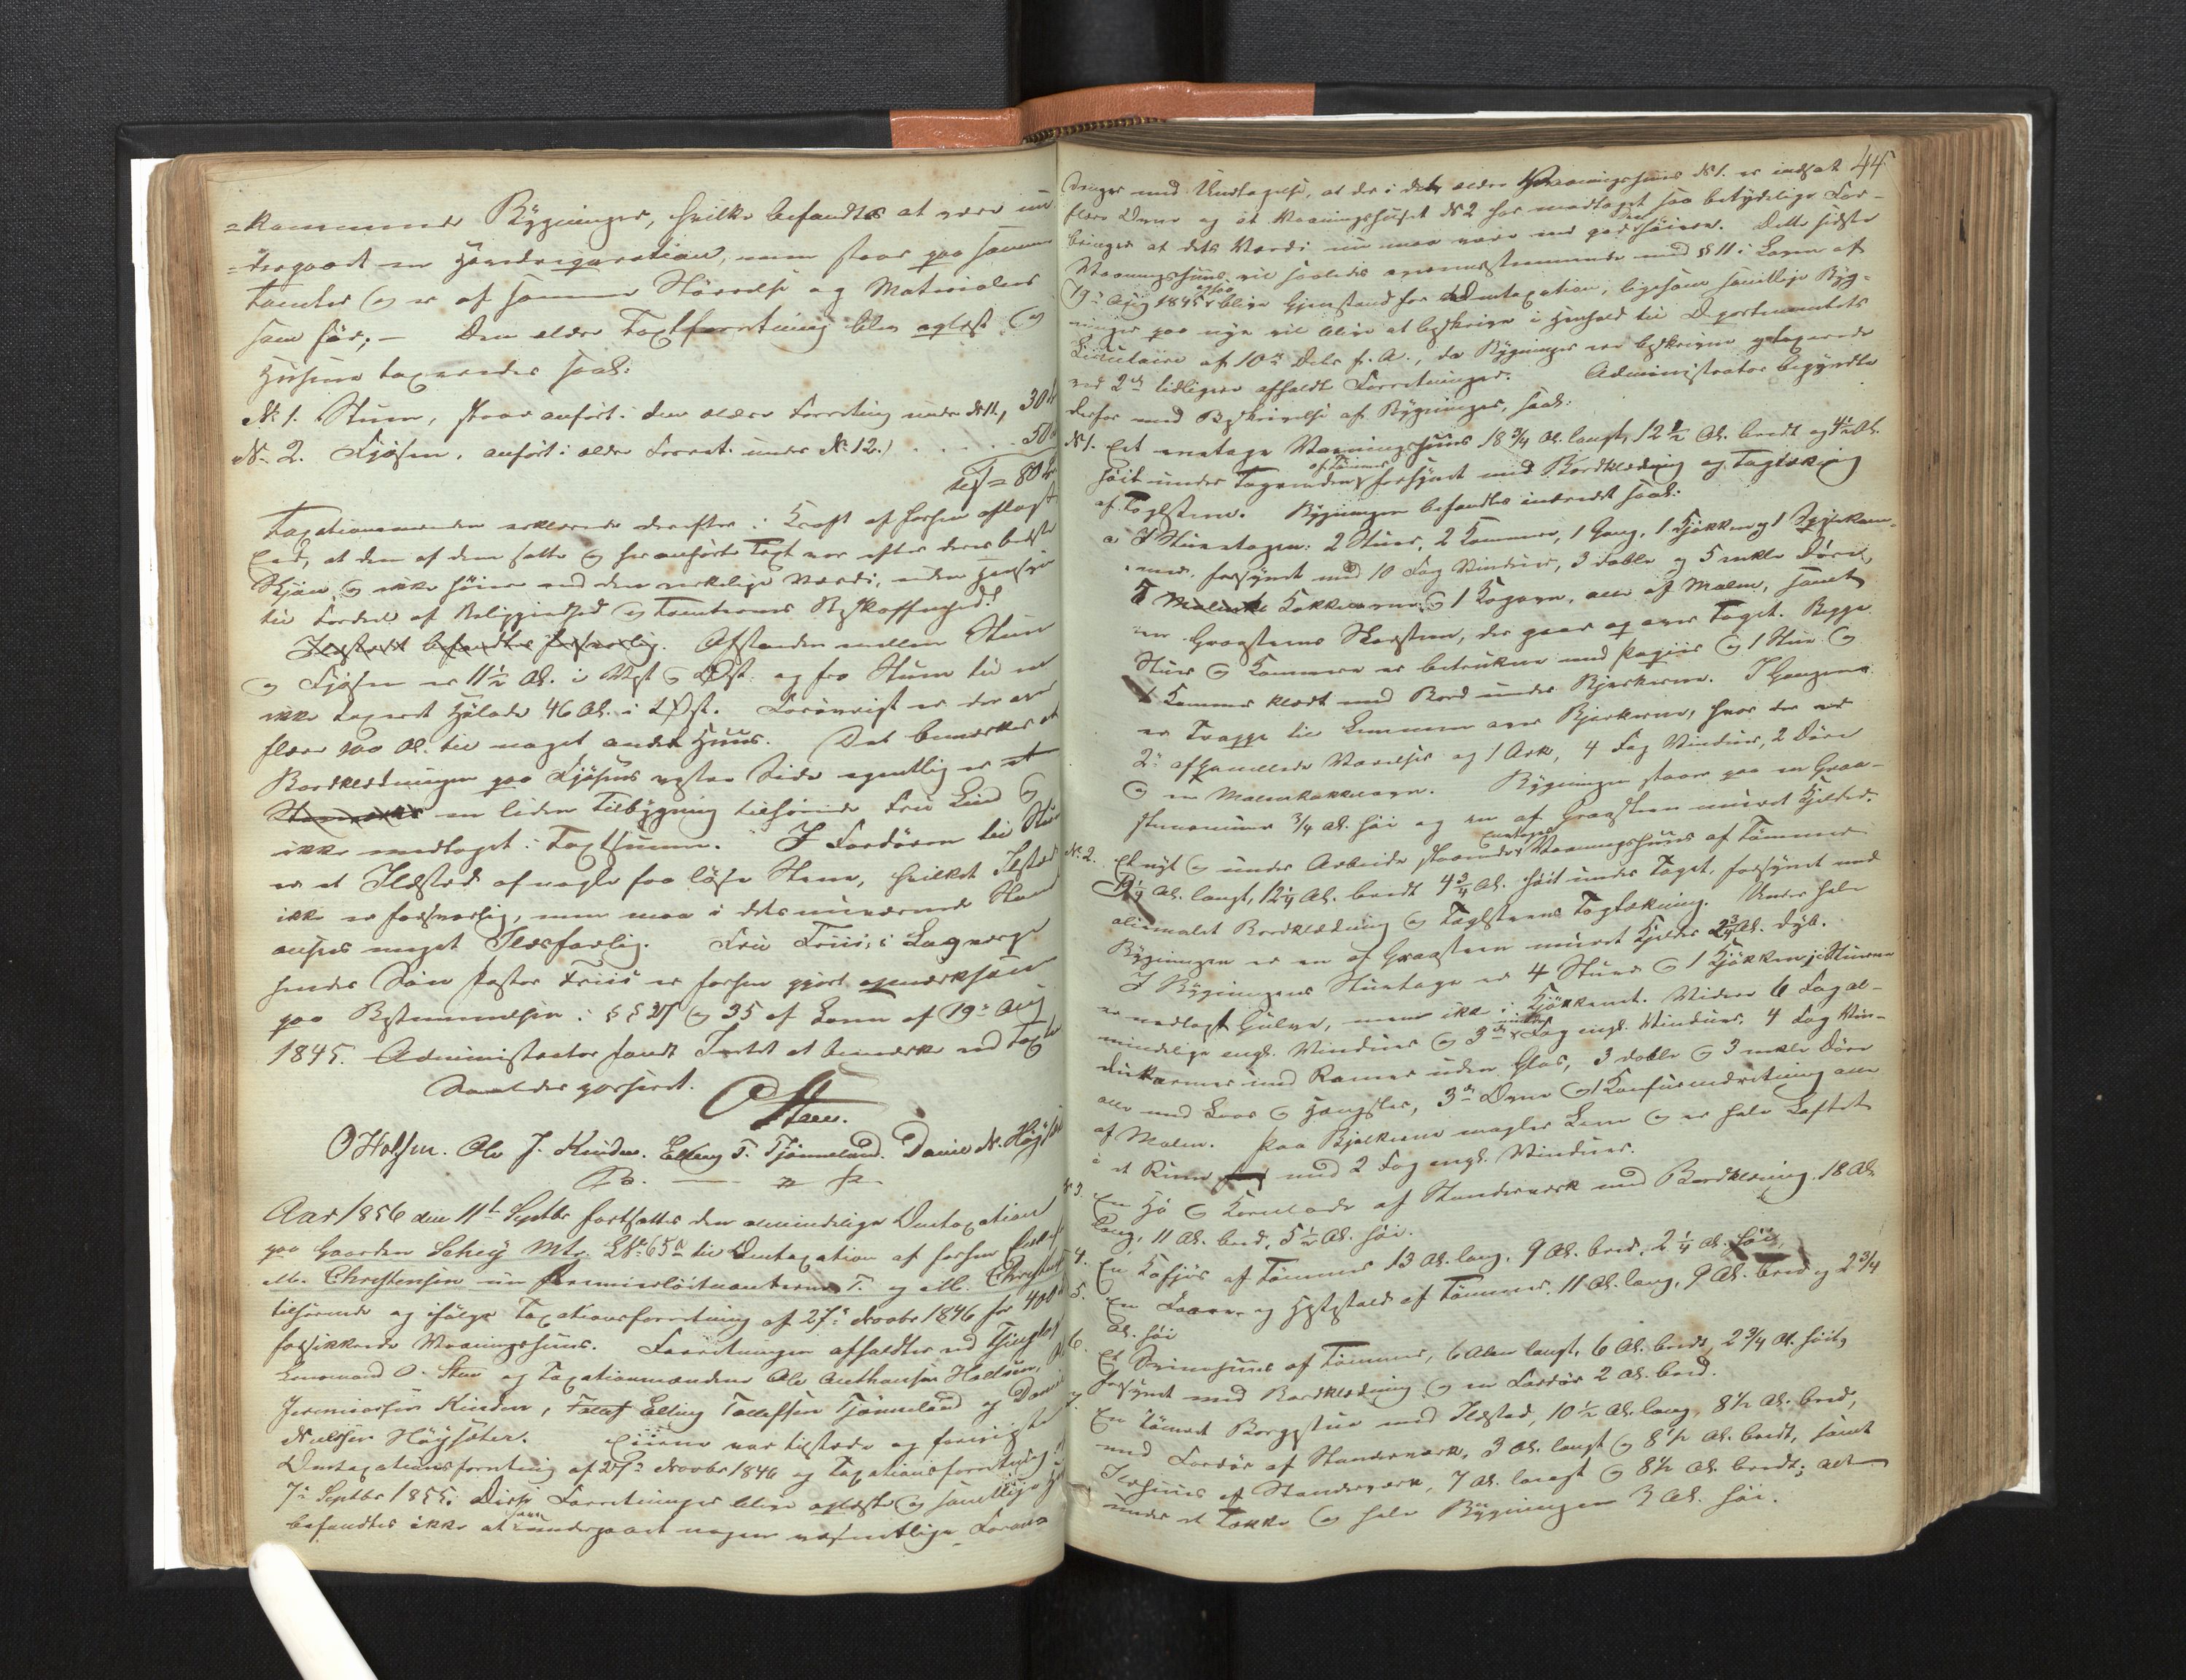 =kommende Bygninger, hvilke befandtes at være un-
=dergaaet en Hovedreparation, men staar paa samme
Tomter og er af samme Störrelse og Materialer
som för; — Den ældre Taxtforretning blev oplæst og
Husene taxeredes saal:
No 1. Stuen, staar anfört i den ældre Forretning under No 11, 30
No 2. Fjösen, anfört i ældre Forret. under No 12. . . . . 50
= 80
Taxationsmændene erklærede derefter i Kraft af forhen aflagt
Eed, at den af dem satte og her anförte Taxt var efter deres bedste
Skjön og ikke höiere end den virkelige Værdi, uden Hensyn
til Fordeel af Beliggenhed og Tomternes Beskaffenhed.
Ildstedet befandtes forsvarlig. Afstanden mellem Stuen
og Fjösen er 11½ Al. i Vest og Öst. og fra Stuen til en
ikke taxeret Hölade 46 Al. i Öst. Forövrigt er der over
flere 100 Al. til noget andet Huus. Det bemærkes at
Bordklædningen paa Fjösens vestre Side egentlig er et
en liden Tilbygning tilhörende Fru Lind og
ikke medtaget i Taxtsummen. I Fordören til Stuen
er et Ildsted af nogle faa löse Stene, hvilket Ildsted
ikke er forsvarlig, men maa i dets nuværende Stand
ansees meget Ildsfarlig. Fru Friis's Laugværge
hendes Sön Pastor Friis er forhen gjort opmærksom
paa Bestemmelsen i §§ 27 og 35 af Loven af 19de Aug
1845. Administrator fandt Intet at bemærke ved Taxten
Saaledes passeret.
O Steen.
O Halsen. Ole J. Kinden. Elling T. Tjönneland. Daniel N. Höj
Aar 1856 den 11te Septbr fortsattes den almindelige Omtaxation
paa Gaarden Schey Mtr. LNo 65a til Omtaxation af forhen
M. Christensen nu Premierlöitnanterne F. og M. Christens
tilhörende og ifölge Taxationsforretning af 27de Novbr 1846 for 400
forsikkrede Vaaningshuus. Forretningen afholdtes ved Thinglag
Lensmand O. Steen og Taxationsmændene Ole Anthonsen Halsen,
Jeremiassen Kinden, Elling Tollefsen Tjönneland og Daniel
Nielsen Höysæter. Eierne var tilstede og foreviste
Omtaxationsforretning af 27de Novbr 1846 og Taxationsforretning
7de Septbr 1855; Disse Forretninger blev oplæst og samtlige
befandtes ikke at have undergaaet nogen væsentlige Foran-
44
dringer med Undtagelse, at der i det ældre Vaaningshuus No 1. er indsat
flere Ovne og at Vaaningshuset No 2 har modtaget saa betydelige For-
bringer at dets Værdi nu maa være end höiere. Dette sidste
Vaaningshuus vil saaledes overeensstemmende med § 11 i Loven af
19de Aug 1845 ogsaa blive Gjenstand for Omtaxation, ligesom samtlige Byg-
ninger paa nye vil blive at beskrive i Henhold til Departementets
Circulaire af 10de Febr f. A., da Bygninger ere beskrevne og taxerede
ved 2de tidligere afholdte Forretninger. Administrator begyndte
derfor med Beskrivelse af Bygninger, saal:
No 1. Et eenetages Vaaningshuus 18¾ Al. langt, 12½ Al. bredt og 4½ Al.
höit under Tagrenden, af Tömmer forsynet med Bordklædning og Tagtækning
af Taglsteen. Bygningen befandtes indredet saal:
a I Stueetagen: 2 Stuer, 2 Kammere, 1 Gang, 1 Kjökken og 1 Spisekam-
mer, forsynet med 10 Fag Vinduer, 3 doble og 5 enkle Döre,
Kakkelovne og 1 Kogeovn, alle af Malm, samt
en Graasteens Skorsteen, der gaar op over Taget. Begge
Stuer og Kammere er betrukne med Papiir og 1 Stue og
1 Kammer klædt med Bord under Bjelkerne. I Gangene
er Trappe til Lemmen over Bjelkerne, hvor der er
2de afpanelede Værelser og 1 Ark, 4 Fag Vinduer, 2 Döre
og en Malmkakkelovn. Bygningen staar paa en Graa-
steensmuur ¾ Al. höi og en af Graasteen muret Kjelder.
No 2. Et nyt og under Arbeide staaende eenetages Vaaningshuus af Tömmer
19¼ Al. langt, 12¼ Al. bredt 4¾ Al. höit under Taget, forsynet med
oliemalet Bordklædning og Taglsteens Tagtækning. Under hele
Bygningen er en af Graasteen muret Kjelder 2¾ Al. dyb.
I Bygningens Stueetage er 4 Stuer og 1 Kjökken; i Stuerne
er nedlagt Gulve, men ikke i Kjökkenet. Videre 6 Fag al-
mindelige engl. Vinduer og 3de mindre Fag engl. Vinduer, 4 Fag Vin-
duekarmer med Rammer uden Glas, 3 doble og 3 enkle Döre
alle med Laas og Hængsler, 3de Ovne og 1 Komfurindretning alle
af Malm. Paa Bjelkerne mangler Lem og er hele Loftet
i et Rum med 2 Fag engl. Vinduer.
No 3. En Hö og Kornlade af Standerværk med Bordklædning. 18 Al.
lang, 11 Al. bred, 5½ Al. höi.
4. En Kofjös af Tömmer 13 Al. lang, 9 Al. bred, 2¼ Al. höi
5. En Faare- og Heststald af Tömmer, 11 Al. lang, 9 Al. bred og 2¾
Al. höi
6. Et Sviinehuus af Tömmer, 6 Alen langt, 6 Al. bredt, 2¾ Al. höit,
forsynet med Bordklædning og en Fordör 2 Al. bred.
7. En tömret Borgestue med Ildsted, 10½ Al. lang, 8½ Al. bred,
med Fordör af Standerværk, 3 Al. langt og 8½ Al. bredt, samt
Ildhuus af Standerværk, 7 Al. langt og 8½ Al. bredt; alt
under et Tække og hele Bygningen 3 Al. höi.